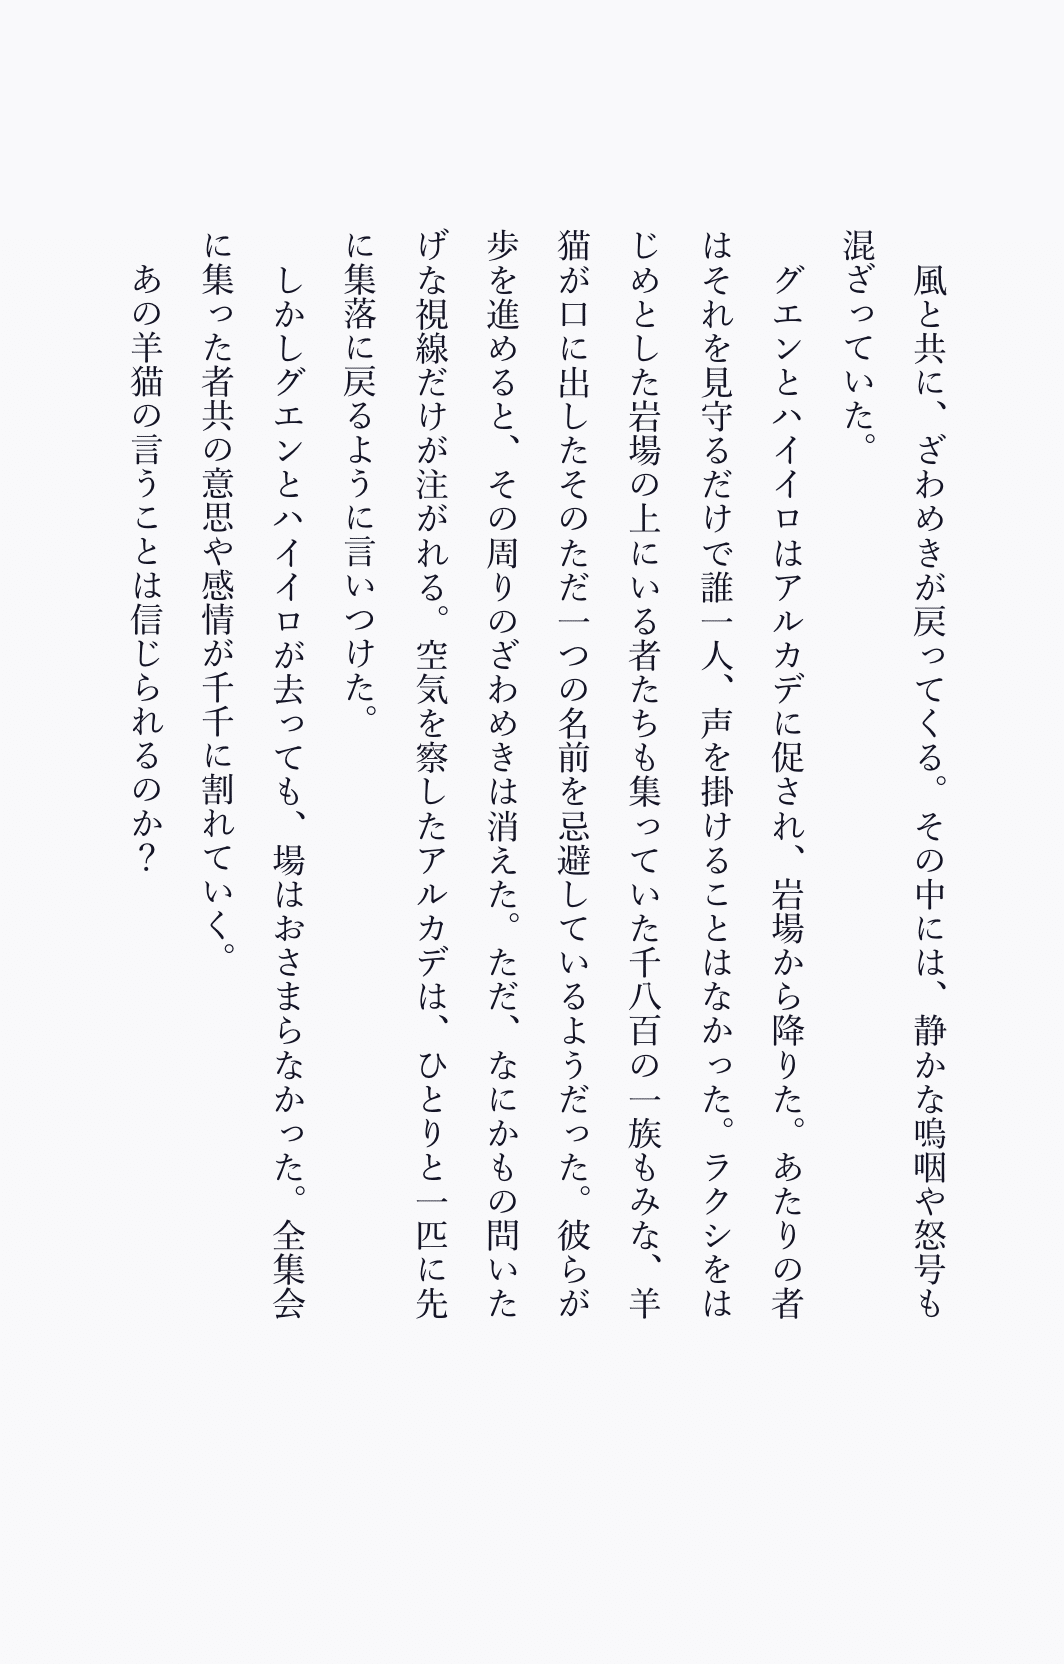 風と共に、ざわめきが戻ってくる。その中には、静かな嗚咽や怒号も
混ざっていた。
　グエンとハイイロはアルカデに促され、岩場から降りた。あたりの者
はそれを見守るだけで誰一人、声を掛けることはなかった。ラクシをは
じめとした岩場の上にいる者たちも集っていた千八百の一族もみな、羊
猫が口に出したそのただ一つの名前を忌避しているようだった。彼らが
歩を進めると、その周りのざわめきは消えた。ただ、なにかもの問いた
げな視線だけが注がれる。空気を察したアルカデは、ひとりと一匹に先
に集落に戻るように言いつけた。
　しかしグエンとハイイロが去っても、場はおさまらなかった。全集会
に集った者共の意思や感情が千千に割れていく。
　あの羊猫の言うことは信じられるのか？